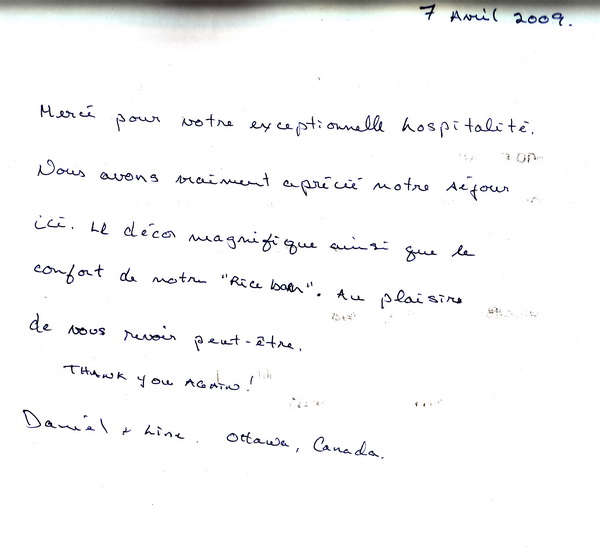 7 Avril 2009.
Merci pour votre exceptionnelle hospitalité.
Nous avons vraiment aprécié notre séjour
ici. Le décor magnifique ainsi que le
confort de notre "Rice barn". Au plaisire
de vous revoir peut-être.
THANK YOU AGAIN!
Daniel + Line. Ottawa, Canada.